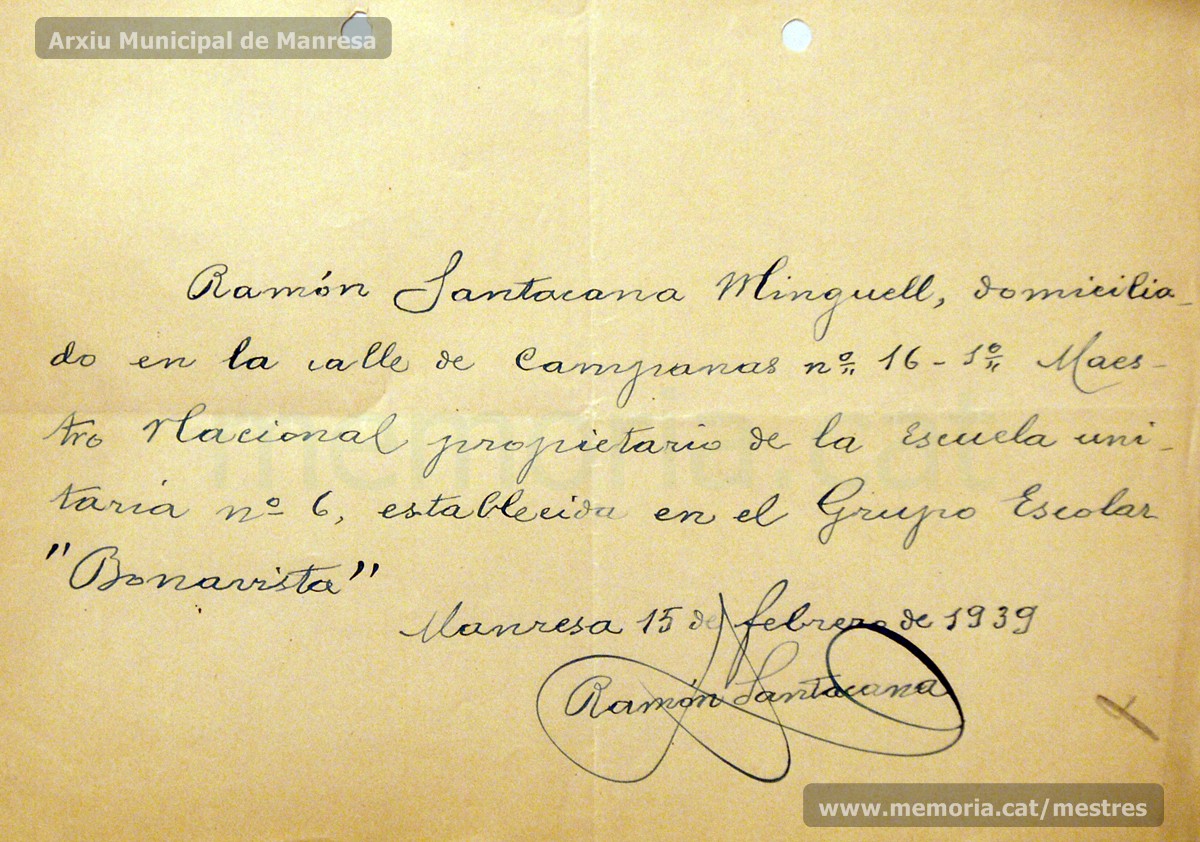 Arxiu Municipal de Manresa
Ramón Santacana Minguell, domicilia-
do en la calle de Campanas nº 16 - 1º Maes-
tro Nacional propietario de la Escuela uni-
taria nº 6, establecida en el Grupo Escolar
"Bonavista"
Manresa 15 de febrero de 1939
Ramón Santacana
memoria.cat
www.memoria.cat/mestres